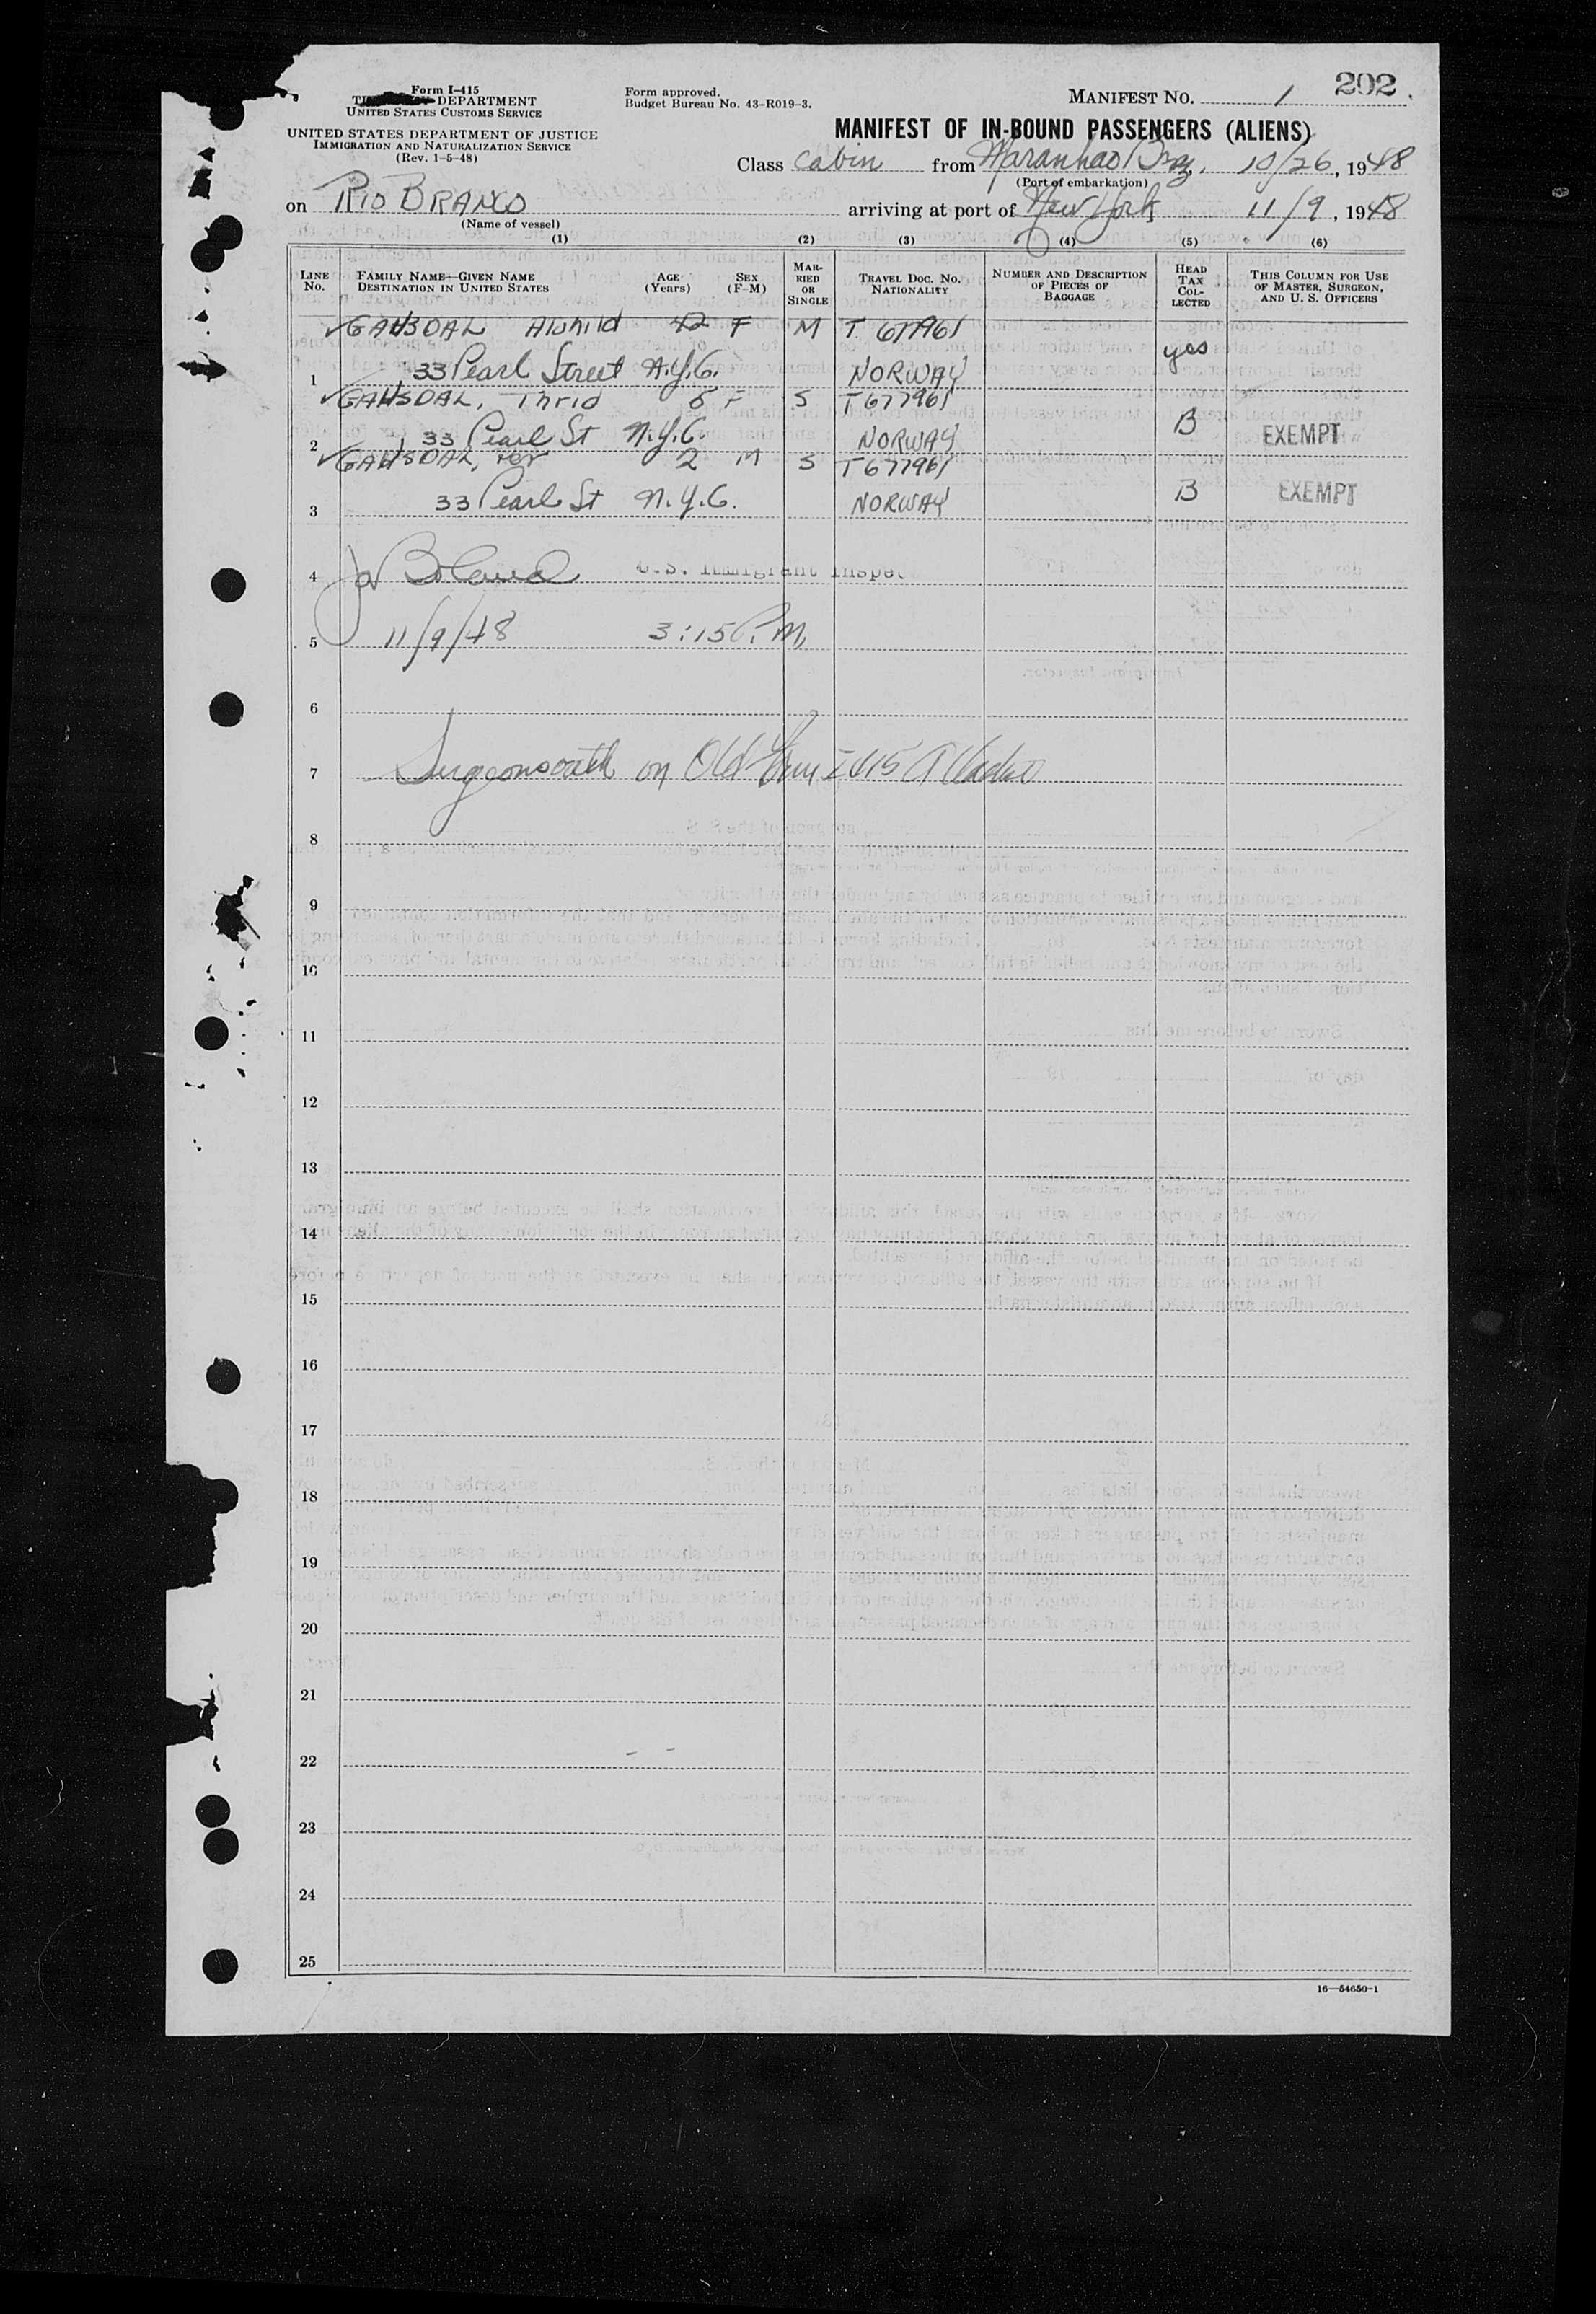 202
Form I-415
DEPARTMENT
UNITED STATES CUSTOMS SERVICE
UNITED STATES DEPARTMENT OF JUSTICE
IMMIGRATION AND NATURALIZATION SERVICE
(Rev. 1-5-48)
Form approved.
Budget Bureau No. 43-R019-3.
MANIFEST NO. 1
MANIFEST OF IN-BOUND PASSENGERS (ALIENS)
Class Cabin from Maranhao Braz. 10/26, 1948
(Port of embarkation)
on RIO BRANCO arriving at port of New York 11/9, 1948
(Name of vessel)
(1) (2) (3) (4) (5) (6)
LINE No.
FAMILY NAME—GIVEN NAME DESTINATION IN UNITED STATES
AGE (Years)
SEX (F-M)
MARRIED OR SINGLE
TRAVEL DOC. NO. NATIONALITY
NUMBER AND DESCRIPTION OF PIECES OF BAGGAGE
HEAD TAX COLLECTED
THIS COLUMN FOR USE OF MASTER, SURGEON, AND U. S. OFFICERS
42 F M T. 677961
yes
1 33 Pearl Street N.Y.C. NORWAY
5 F S T 677961
B EXEMPT
2 33 Pearl St N.Y.C. NORWAY
2 M S T 677961
B EXEMPT
3 33 Pearl St N.Y.C. NORWAY
4 Boland U.S. Immigrant Inspec
5 11/9/48 3:15 P.M,
6
7 Surgeons oath on Old Form I 415
8
9
10
11
12
13
14
15
16
17
18
19
20
21
22
23
24
25
16—54650-1